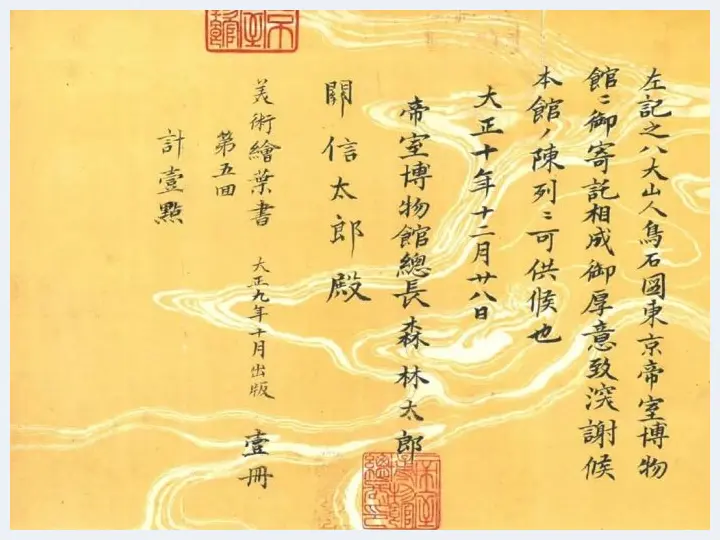 左記之八大山人鳥石図東京帝室博物
館ニ御寄託相成御厚意致深謝候
本館ノ陳列ニ可供候也
大正十年十二月廿八日
帝室博物館總長森林太郎
關信太郎殿
美術繪葉書 大正九年十月出版 壹冊
第五回
計壹點